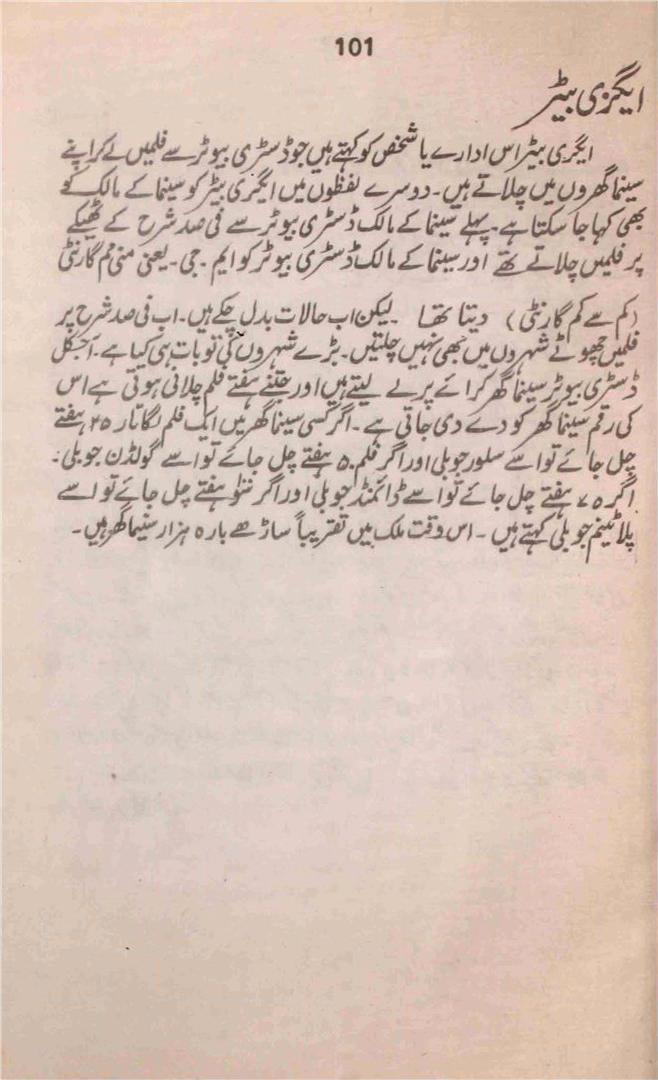 101
ایگزی بیٹر
ایگزی بیٹر اس ادارے یا شخص کو کہتے ہیں جو ڈسٹری بیوٹر سے فلمیں لے کر اپنے
سینما گھروں میں چلاتے ہیں۔ دوسرے لفظوں میں ایگزی بیٹر کو سینما کے مالک کو
بھی کہا جا سکتا ہے۔ پہلے سینما کے مالک ڈسٹری بیوٹر سے فی صد شرح کے ٹھیکے
پر فلمیں چلاتے تھے اور سینما کے مالک ڈسٹری بیوٹر کو ایم۔ جی۔ یعنی منی مم گارنٹی
(کم سے کم گارنٹی) دیتا تھا ۔ لیکن اب حالات بدل چکے ہیں۔ اب فی صد شرح پر
فلمیں چھوٹے شہروں میں بھی نہیں چلتیں۔ بڑے شہروں کی تو بات ہی کیا ہے۔ آجکل
ڈسٹری بیوٹر سینما گھر کرائے پر لے لیتے ہیں اور جتنے ہفتے فلم چلانی ہوتی ہے اس
کی رقم سینما گھر کو دے دی جاتی ہے۔ اگر کسی سینما گھر میں ایک فلم لگاتار ۲۵ ہفتے
چل جائے تو اسے سلور جوبلی اور اگر فلم ۵۰ ہفتے چل جائے تو اسے گولڈن جوبلی۔
اگر ۷۵ ہفتے چل جائے تو اسے ڈائمنڈ جوبلی اور اگر سو ہفتے چل جائے تو اسے
پلاٹینم جوبلی کہتے ہیں ۔ اس وقت ملک میں تقریباً ساڑھے بارہ ہزار سینما گھر ہیں۔